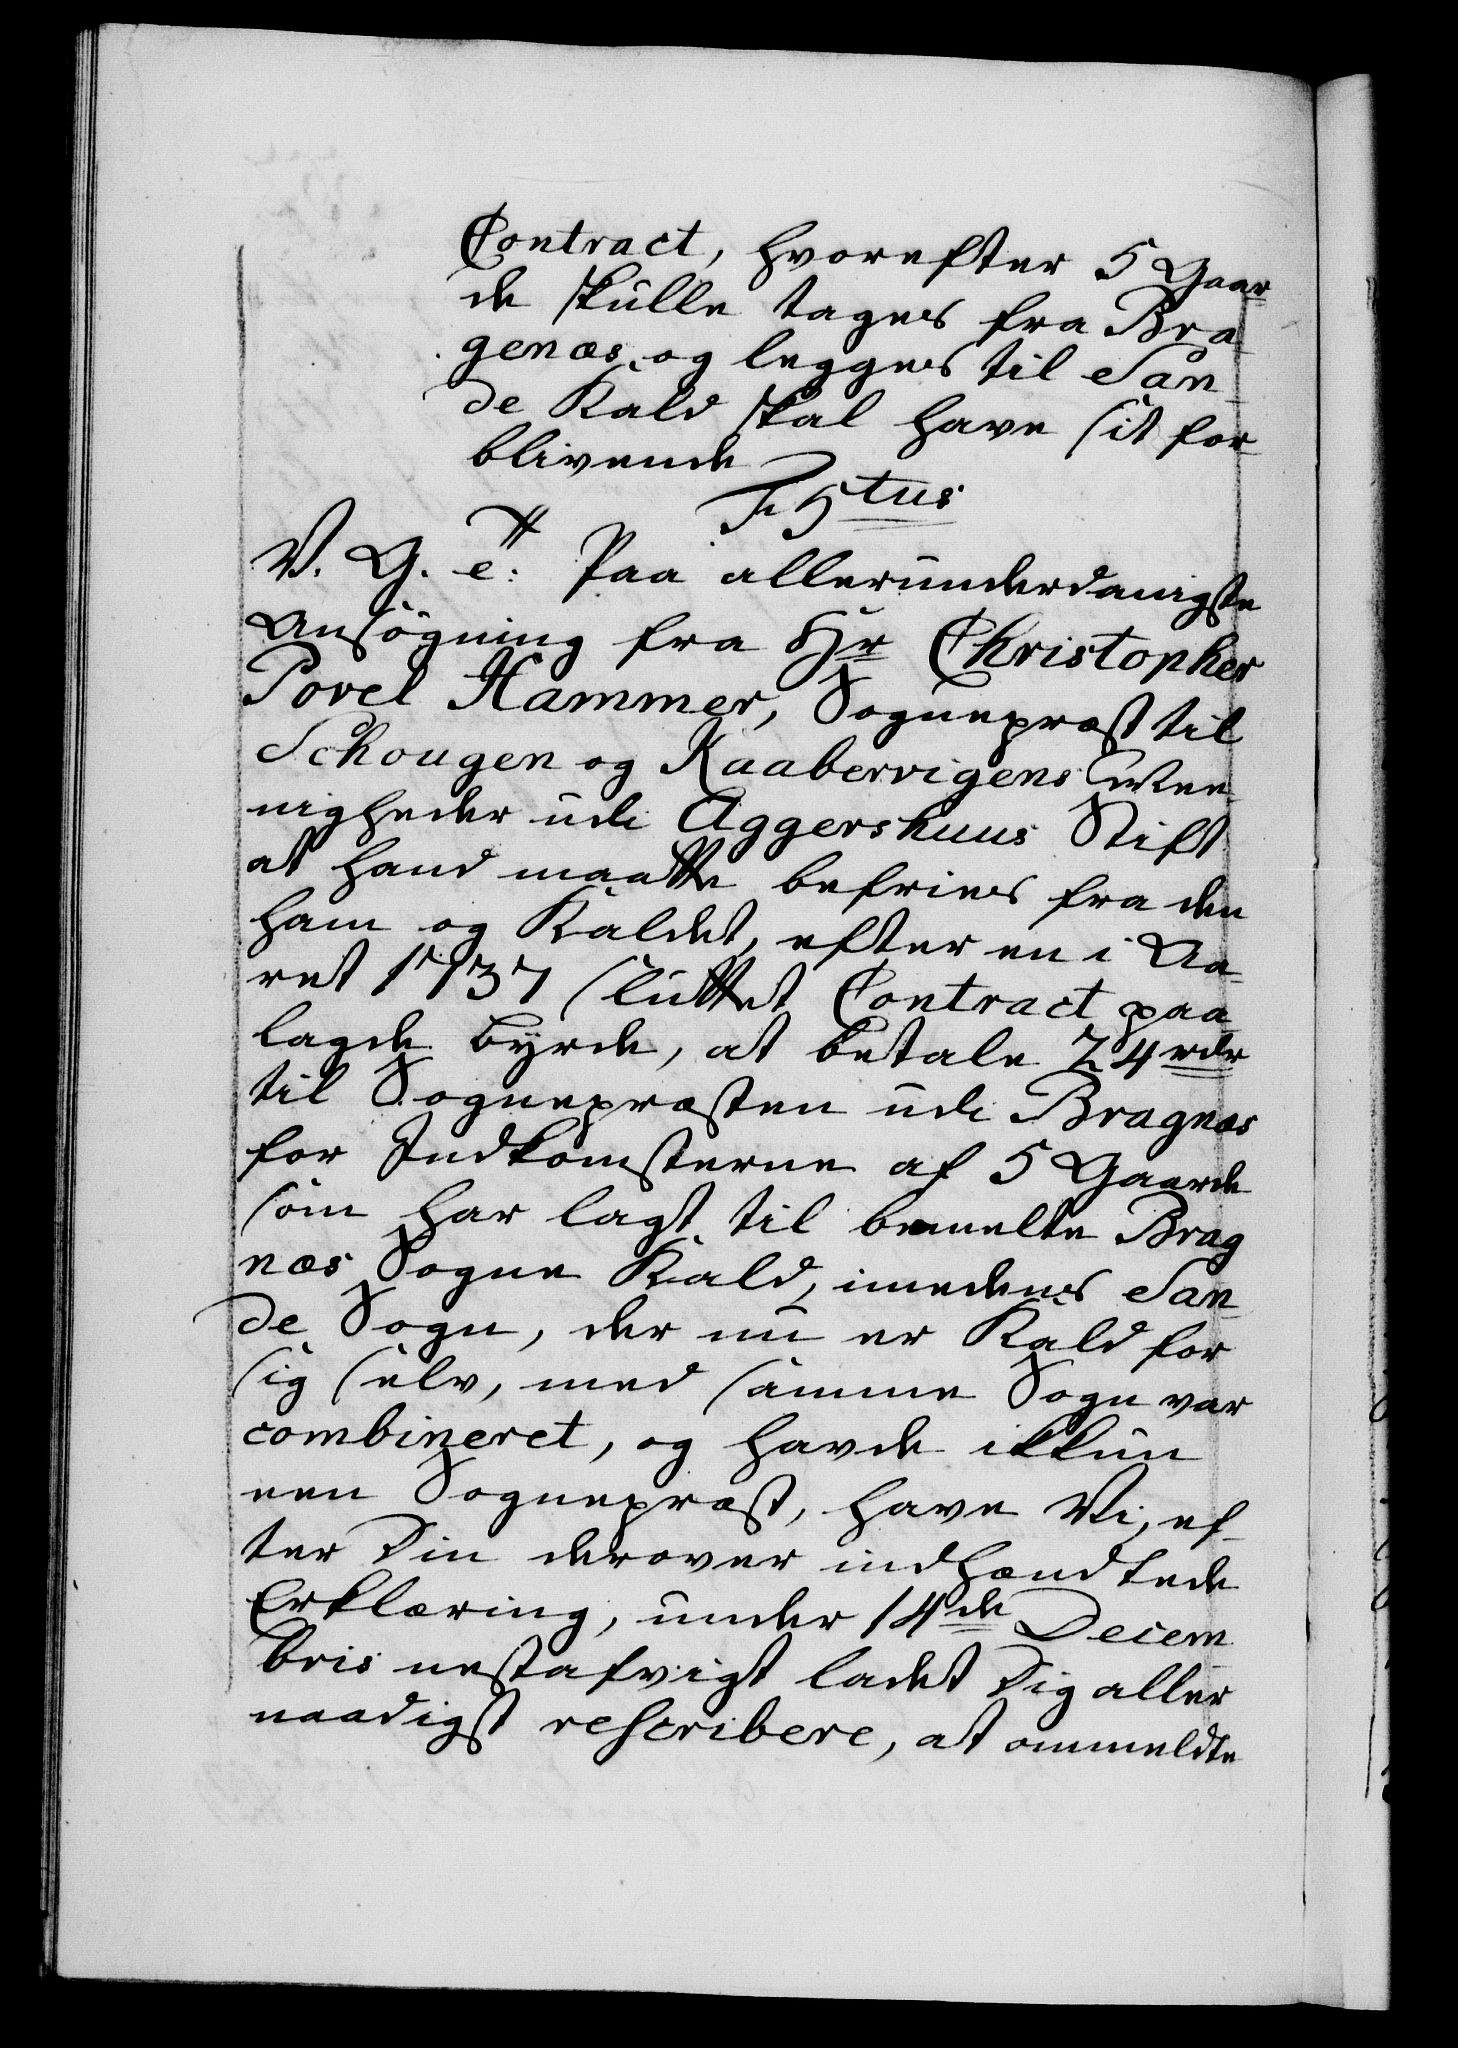 Contract, hvorefter 5 Gaar-
de skulle tages fra Bra-
genæs, og legges til San-
de Kald skal have sit for-
blivende
F. 5tus
V. G. e: Paa allerunderdanigste
Ansögning fra Hr Christopher
Povel Hammer, Sognepræst til
Schougen og Kaabervigens Mee-
nigheder udi Aggershuus Stift
at hand maatte befries fra den
ham og Kaldet, efter en i Aa-
ret 1737 sluttet Contract paa-
lagde Byrde, at betale 24 rdr
til Sognepræsten udi Bragnæs
for Indkomsterne af 5 Gaarde
som har lagt til bemelte Brag
næs Sogne Kald, imedens San-
de Sogn, der nu er Kald for
sig selv, med samme Sogn var
combineret, og havde ikkun
een Sognepræst, have Vi, ef-
ter Din derover indhændtede
Erklæring, under 14de Decem
bris nestafvigt ladet Dig aller
naadigst rescribere, at ommeldte